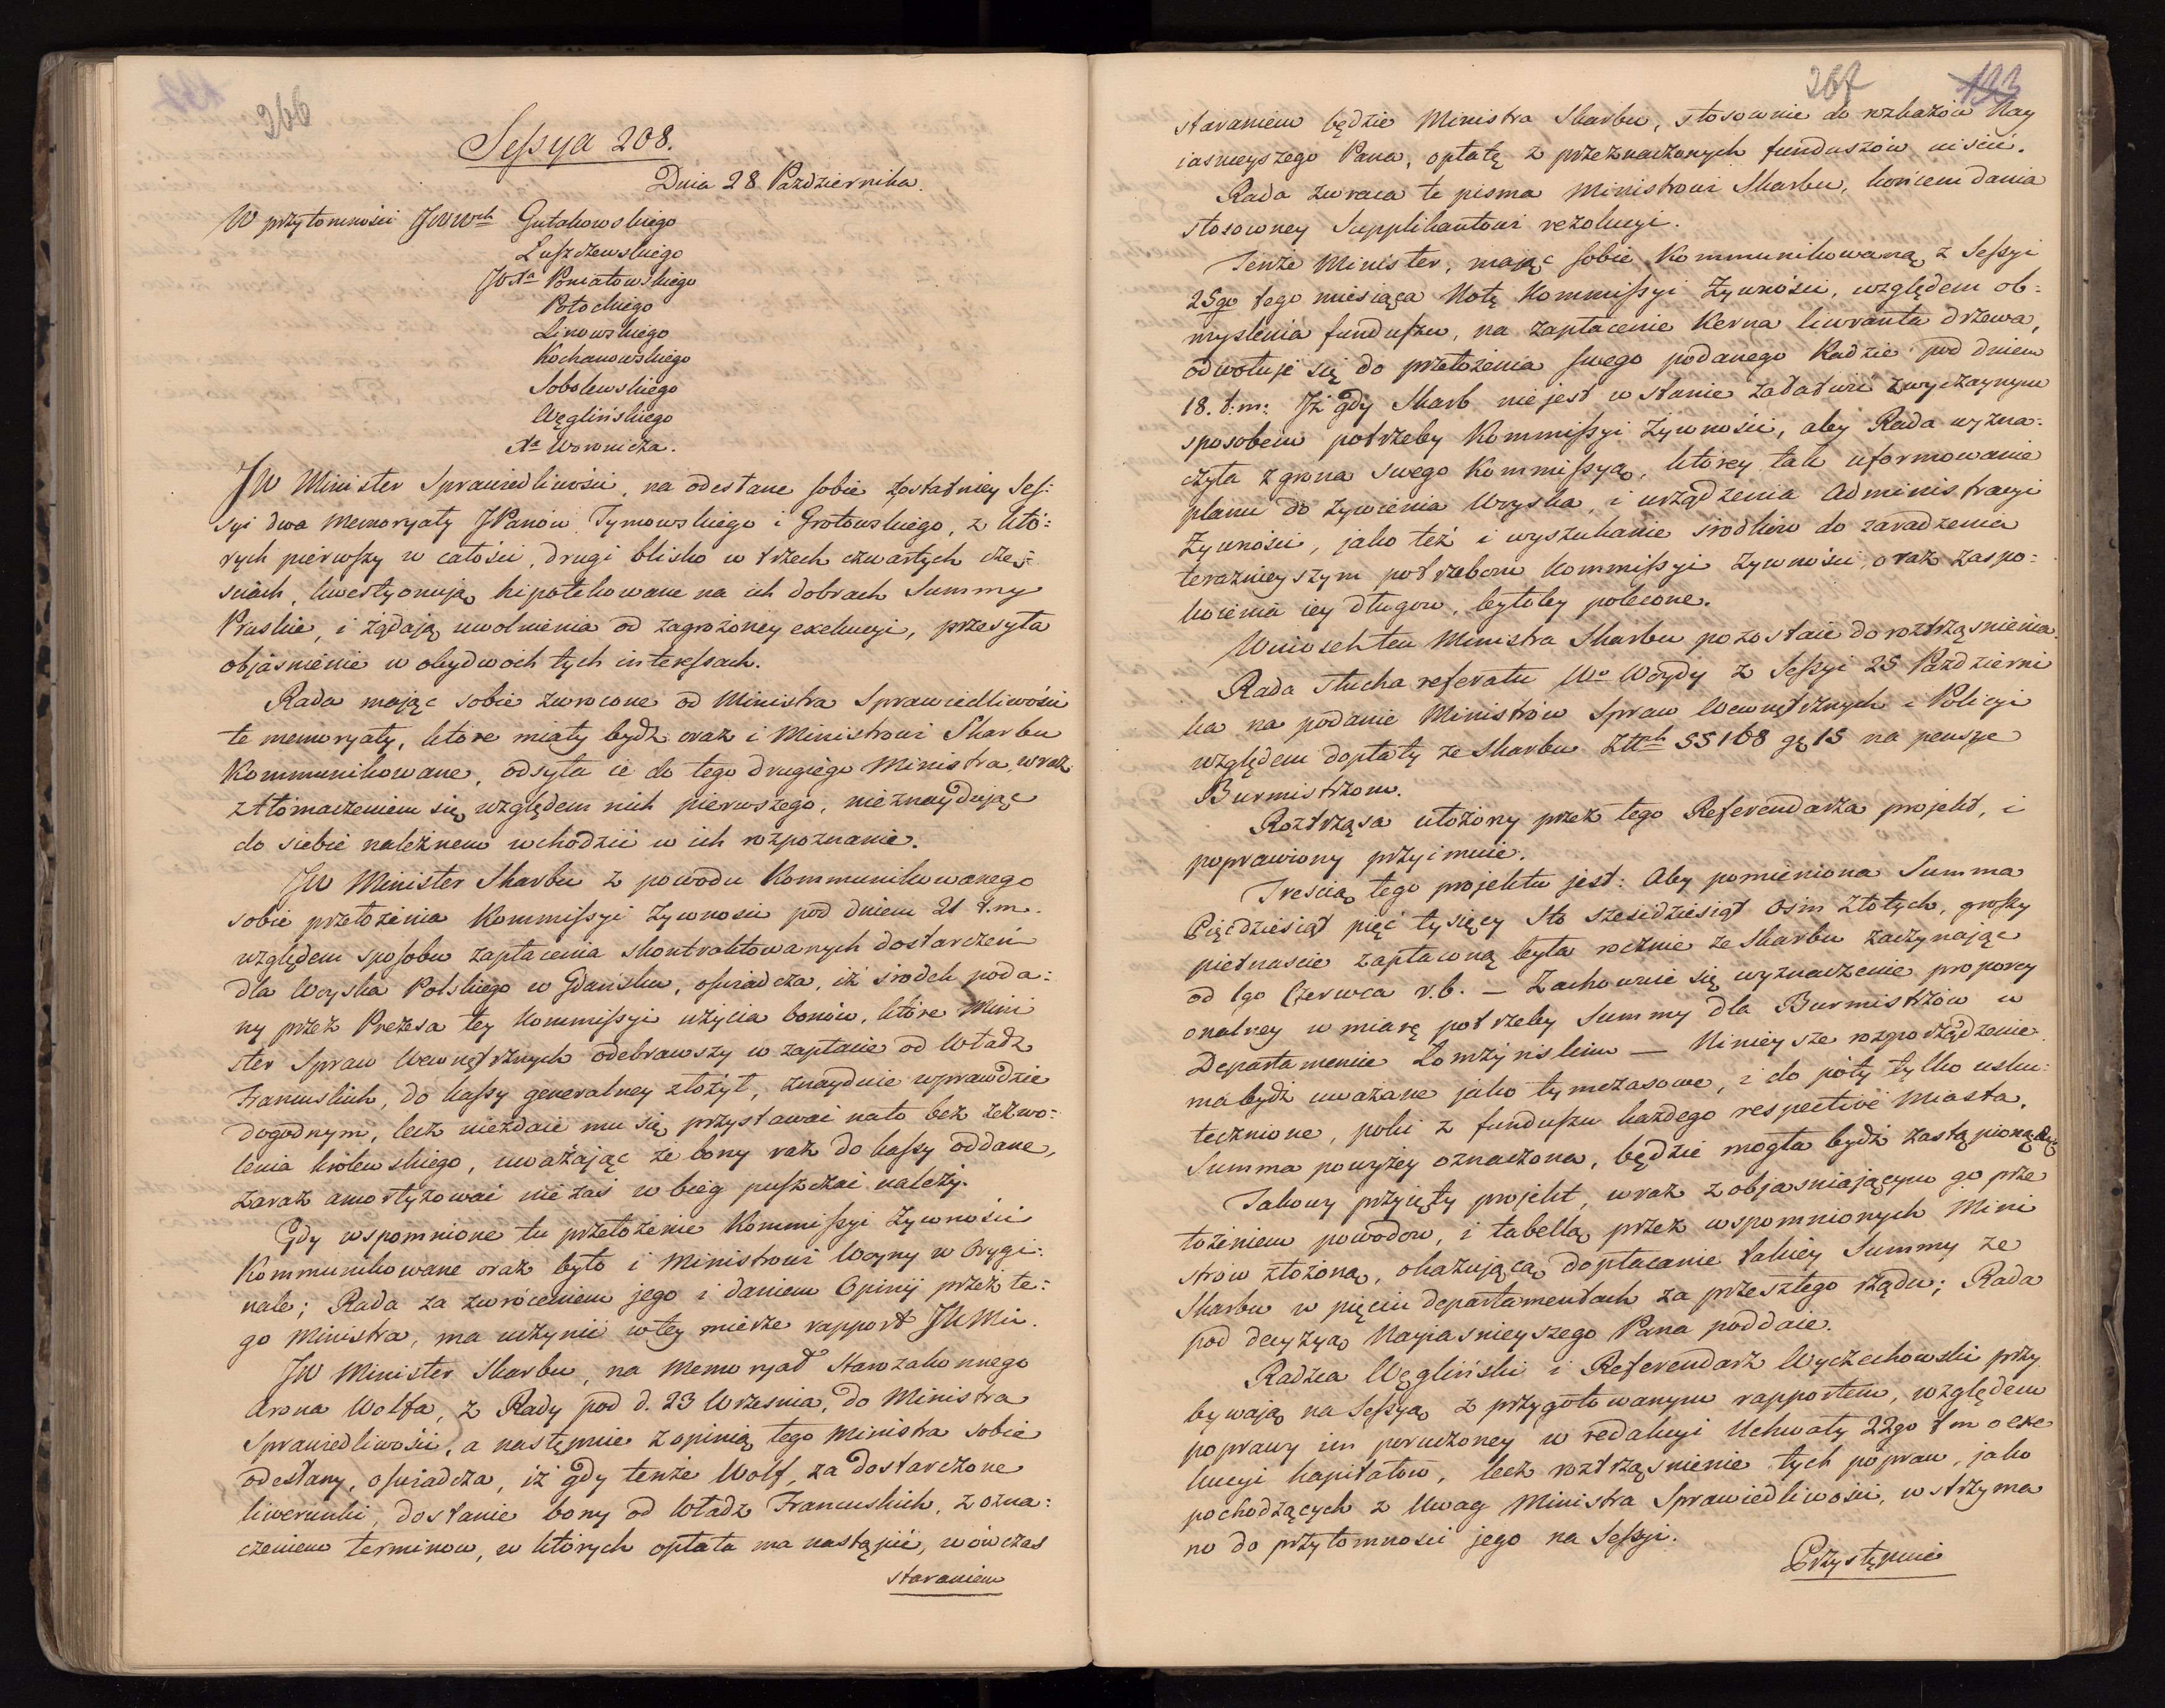 266
Seſsya 208.
Dnia 28 Pazdziernika.
W przytomności JWWch Gutakowskiego
Łuſzczewskiego
JOXa Poniatowskiego
Potockiego
Linowskiego
Kochanowskiego
Sobolewskiego
Węglińskiego
Xa Woronicza.
JW Minister Sprawiedliwości, na odesłane ſobie zostatniey Seſ:
syi dwa Memoryały JPanów Tymowskiego i Grotowskiego, z któ:
rych pierwſzy w całości, drugi blisko w trzech czwartych czę:
sciach, kwestyonują hipotekowane na ich dobrach Summy
Pruskie, i żądają uwolnienia od zagrożoney exekucyi, przesyła
objaśnienie w obydwoch tych intereſsach.
Rada maiąc sobie zwrocone od Ministra Sprawiedliwości
te memoryały, które miały bydź oraz i Ministrowi Skarbu
Kommunikowane, odsyła ie do tego drugiego Ministra, wraz
ztłomaczeniem się względem nich pierwszego, nieznayduiąc
do siebie należnem wchodzić w ich rozpoznanie.
JW Minister Skarbu z powodu Kommunikowanego
sobie przełożenia Kommiſsyi Zywnosci pod dniem 21 t.m.
względem spoſobu zapłacenia skontraktowanych dostarczeń
dla Woyska Polskiego w Gdańsku, oſwiadcza, iż środek poda:
ny przez Prezesa tey Kommiſsyi użycia bonów, które Mini
ster Spraw Wewnętrznych odebrawszy w zapłacie od Władz
Francuskich, do kaſsy generalney złożył, znayduie wprawdzie
dogodnym, lecz niezdaie mu się przystawać nato bez zezwo:
lenia krolewskiego, uważaiąc że bony raz do kaſsy oddane,
zaraz amortyzować nie zaś w bieg puſzczać należy.
Gdy wspomnione tu przełożenie Kommiſsyi Żywności
Kommunikowane oraz było i Ministrowi Woyny w Orygi:
nale; Rada za zwróceniem jego i daniem Opinij przez te:
go Ministra, ma uczynić wtey mierze rapport JKMci.
JW Minister Skarbu, na Memoryał Starozakonnego
Arona Wolfa, z Rady pod d. 23 Wrzesnia, do Ministra
Sprawiedliwości, a następnie z opinią tego Ministra sobie
odesłany, oſwiadcza, iż gdy tenże Wolf, za dostarczone
liwerunki, dostanie bony od Władz Francuskich, z ozna:
czeniem terminow, w których opłata ma nastąpić, wówczas
staraniem
267 133
staraniem będzie Ministra Skarbu, stosownie do rozkazów Nay
iasnieyszego Pana, opłatę z przeznaczonych funduszów uiścić.
Rada zwraca te pisma Ministrowi Skarbu, końcem dania
stosowney Supplikantowi rezolucyi.
Tenże Minister, mając ſobie Kommunikowaną z Seſsyi
25go tego miesiąca Notę Kommiſsyi Zywności, względem ob:
myslenia funduſzu, na zapłacenie Kerna liwranta drzewa,
odwołuje się do przełożenia ſwego podanego Radzie pod dniem
18. t.m: Iż gdy Skarb nie jest w stanie załatwić zwyczaynym
sposobem potrzeby Kommiſsyi Żywności, aby Rada wyzna:
czyła z grona swego Kommiſsyą, którey tak uformowanie
planu do żywienia Woyska, i urządzenia Administracyi
Żywności, jako też i wyszukanie srodków do zaradzenia
teraznieyszym potrzebom Kommiſsyi Zywności, oraz zaspo:
koienia iey długow, byłoby polecone.
Wniosek ten Ministra Skarbu pozostaie do roztrząsnienia.
Rada słucha referatu Wo Woydy z Seſsyi 25 Pazdzierni
ka na podanie Ministrów Spraw Wewnętrznych i Policyi
względem dopłaty ze Skarbu Złtch 55168 gę 15 na pensye
Burmistrzom.
Roztrząsa ułożony przez tego Referendarza projekt, i
poprawiony przyimuie.
Treścią tego projektu jest: Aby pomieniona Summa
Pięćdziesiąt pięć tysięcy Sto sześćdziesiąt Osm Złotych, groſzy
pietnascie zapłaconą była rocznie ze Skarbu zaczynając
od 1go Czerwca r.b. — Zachowuie się wyznaczenie proporcy
onalney w miarę potrzeby Summy dla Burmistrzów w
Departamencie Łomżyńskim — Ninieysze rozporządzenie
ma bydź uważane jako tymczasowe, i do póty tylko usku:
tecznione, poki z funduſzu każdego respective Miasta,
Summa powyżey oznaczona, będzie mogła bydź zastąpioną
Takowy przyięty projekt, wraz z objasniającym go prze
łożeniem powodow, i tabellą przez wspomnionych Mini
strow złożoną, okazującą dopłacanie takiey Summy ze
Skarbu w pięciu departamentach za przeszłego rządu; Rada
pod decyzyą Nayiasnieyszego Pana poddaie.
Radzca Węgliński i Referendarz Wyczechowski przy
bywają na Seſsyą z przygotowanym rapportem, względem
poprawy im poruczoney w redakcyi Uchwały 22go t m o exe
kucyi kapitałow, lecz roztrząsnienie tych popraw, jako
pochodzących z Uwag Ministra Sprawiedliwości, wstrzyma
no do przytomności jego na Seſsyi.
Przystępuie